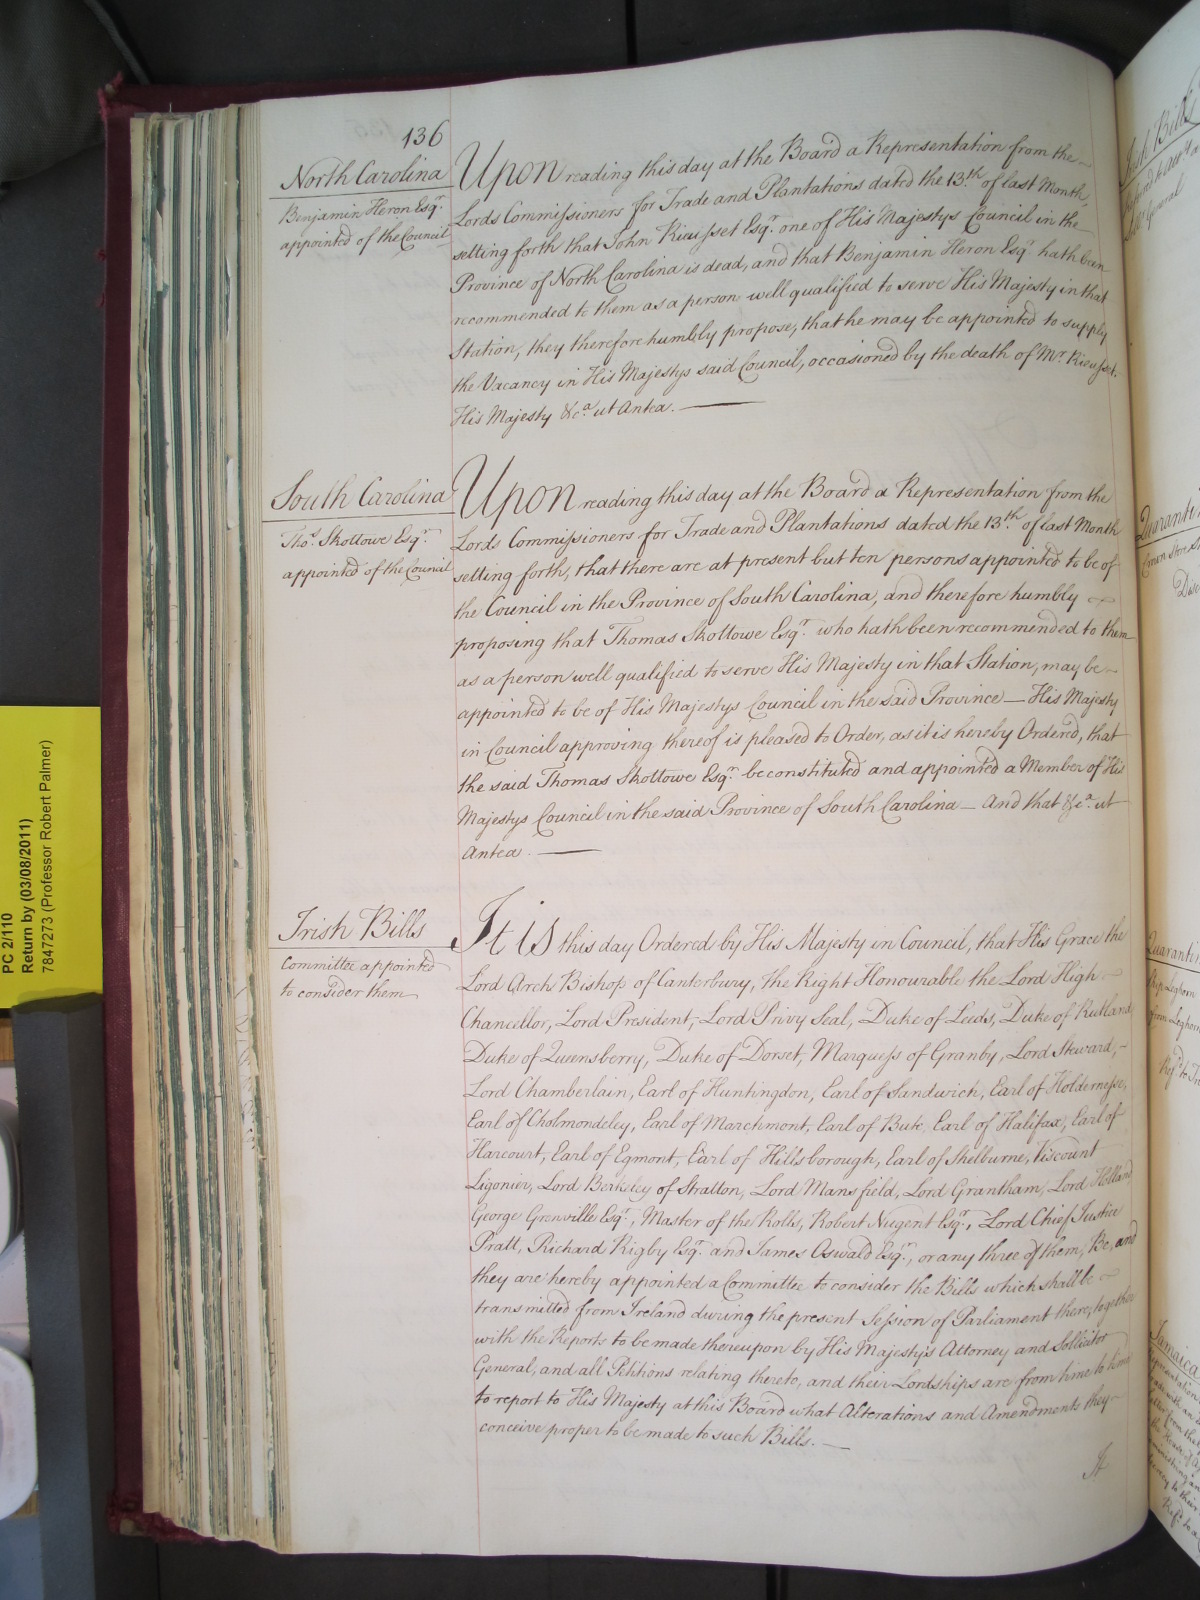 136
North Carolina
Benjamin Heron Esqr.
appointed of the Council
Upon reading this day at the Board a Representation from the
Lords Commissioners for Trade and Plantations dated the 13th. of last Month,
setting forth that John Rieusset Esqr. one of His Majestys Council in the
Province of North Carolina is dead, and that Benjamin Heron Esqr hath been
recommended to them as a person well qualified to serve His Majesty in that
Station, they therefore humbly propose, that he may be appointed to supply
the Vacancy in His Majestys said Council, occasioned by the death of Mr. Rieusset.
His Majesty &ca. ut Antea.
South Carolina
Thos. Skottowe Esqr.
appointed of the Council
Upon reading this day at the Board a Representation from the
Lords Commissioners for Trade and Plantations dated the 13th. of last Month
setting forth, that there are at present but ten persons appointed to be of
the Council in the Province of South Carolina, and therefore humbly
proposing that Thomas Skottowe Esqr. who hath been recommended to them
as a person well qualified to serve His Majesty in that Station, may be
appointed to be of His Majestys Council in the said Province — His Majesty
in Council approving thereof is pleased to Order, as it is hereby Ordered, that
the said Thomas Skottowe Esqr. be constituted and appointed a Member of His
Majestys Council in the said Province of South Carolina — And that &ca. ut
Antea.
Irish Bills
Committee appointed
to consider them
It is this day Ordered by His Majesty in Council, that His Grace the
Lord Arch Bishop of Canterbury, the Right Honourable the Lord High
Chancellor, Lord President, Lord Privy Seal, Duke of Leeds, Duke of Rutland
Duke of Queensberry, Duke of Dorset, Marquess of Granby, Lord Steward,
Lord Chamberlain, Earl of Huntingdon, Earl of Sandwich, Earl of Holdernesse,
Earl of Cholmondeley, Earl of Marchmont, Earl of Bute, Earl of Halifax, Earl of
Harcourt, Earl of Egmont, Earl of Hillsborough, Earl of Shelburne, Viscount
Ligonier, Lord Berkeley of Stratton, Lord Mansfield, Lord Grantham, Lord Holland
George Grenville Esqr., Master of the Rolls, Robert Nugent Esqr., Lord Chief Justice
Pratt, Richard Rigby Esqr. and James Oswald Esqr., or any three of them, Be, and
they are hereby appointed a Committee to consider the Bills which shall be
transmitted from Ireland during the present Session of Parliament there, together
with the Reports to be made thereupon by His Majesty's Attorney and Sollicitor
General, and all Petitions relating thereto, and their Lordships are from time to time
to report to His Majesty at this Board what Alterations and Amendments they
conceive proper to be made to such Bills.
It
PC 2/110
Return by (03/08/2011)
7847273 (Professor Robert Palmer)
Irish Bills
General
Quarantin
Quarantin
Ship Leghorn
from Leghorn
Jamaica